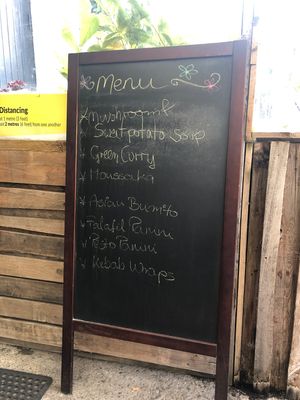 Menu
Mushroom &
Sweetpotato Soup
Green Curry
Moussaka
Asian Burrito
Falafel Panini
Pesto Panini
Kebab Wraps
Distancing
1 metre (3 feet)
2 metres (6 feet) from one another